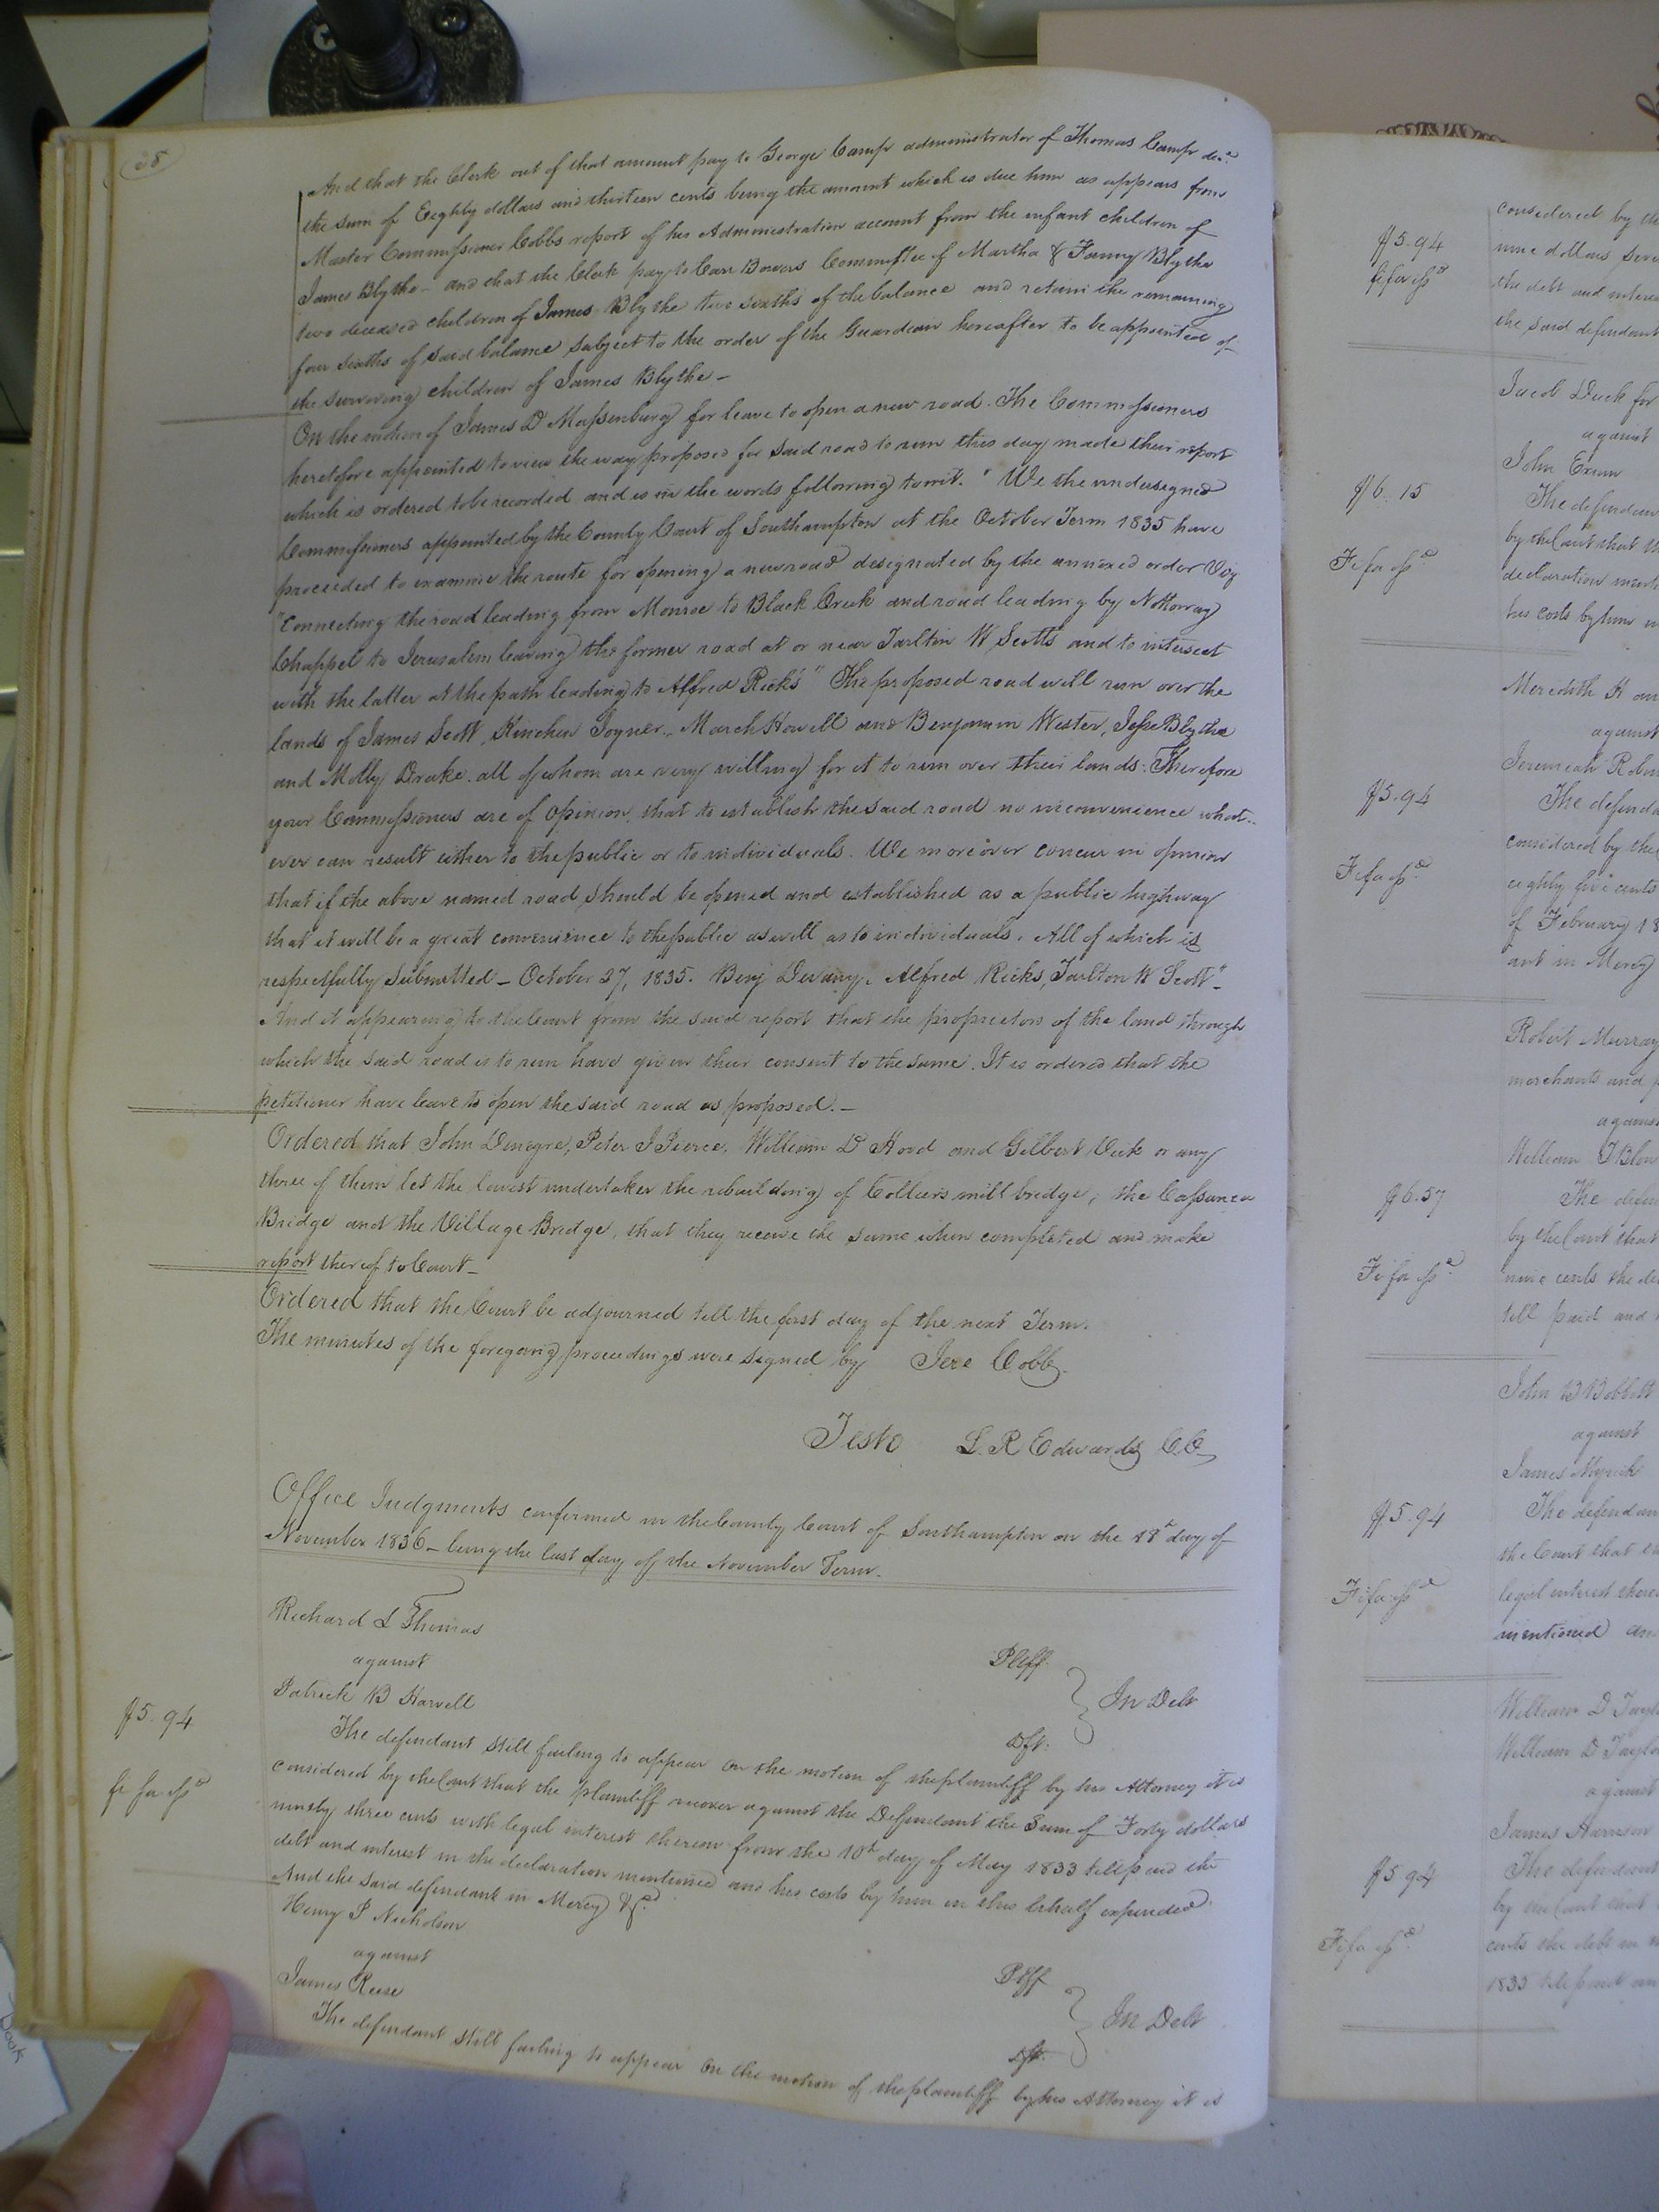 And that the Clerk out of that amount pay to George Camp administrator of Thomas Camp decd
the sum of Eeighty dollars and thirteen cents being the amount which is due him as appears from
Master Commissioner Cobbs report of his Administration account from the infant children of
James Blythe – and that the Clerk pay to Carr Bowers Committee of Martha & Fanny Blythe
two deceased children of James Blythe two sixths of the balance and retain the remaining
four sixths of said balance subject to the order of the Guardian hereafter to be appointed of
the surviving children of James Blythe –
On the motion of James D Massenburg for leave to open a new road. The Commissioners
heretofore appointed to view the way proposed for said road to run this day made their report
which is ordered to be recorded and is in the words following towit. "We the undersigned
Commissioners appointed by the County Court of Southampton at the October Term 1835 have
proceeded to examine the route for opening a new road designated by the annexed order Viz
"Connecting the road leading from Monroe to Black Creek and road leading by Nottoway
Chappel to Jerusalem leaving the former road at or near Tarlton W Scotts and to intersect
with the latter at the path leading to Alfred Ricks" The proposed road will run over the
lands of James Scott, Kinchen Joyner, March Howell and Benjamin Wester, Jesse Blythe
and Molly Drake. all of whom are very willing for it to run over their lands. Therefore
your Commissioners are of opinion, that to establish the said road no inconvenience what-
ever can result either to the public or to individuals. We moreover concur in opinion
that if the above named road should be opened and established as a public highway
that it will be a great convenience to the public as well as to individuals. All of which is
respectfully Submitted – October 27, 1835. Benj Devany, Alfred Ricks, Tarlton W Scott" –
And it appearing to the Court from the said report that the proprietors of the land through
which the said road is to run have given their consent to the same. It is ordered that the
petitioner have leave to open the said road as proposed. –
Ordered that John Denegre, Peter J Pierce, William D Hood and Gilbert Vick or any
three of them let the lowest undertaker the rebuilding of Colliers mill bridge, the
Bridge and the Village Bridge, that they receive the same when completed and make
report thereof to Court –
Ordered that the Court be adjourned till the first day of the next Term.
The minutes of the foregoing proceedings were signed by Jere Cobb
Teste L. R Edwards CC
Office Judgments confirmed in the County Court of Southampton on the 18th day of
November 1836 – being the last day of the November Term.
Richard L Thomas Pltff
against In Debt
Patrick B Harvell Dft.
$5.94 The defendant still failing to appear On the motion of the plaintiff by his Attorney it is
considered by the Court that the plaintiff recover against the Defendant the Sum of Forty dollars
fi fa issd ninety three cents with legal interest thereon from the 10th day of May 1833 till paid the
debt and interest in the declaration mentioned and his costs by him in this behalf expended.
And the said defendant in Mercy &c.
Henry P Nicholson Pltff
against In Debt
James Reese Dft.
The defendant still failing to appear On the motion of the plaintiff by his Attorney it is
considered by
$5.94 nine dollars
fi fa issd the debt and
the said defendant
Jacob Duck for
against
John Exum
$6.15 The defendan
by the Court that
Fi fa issd declaration
his costs by him
Meredith H
against
Jeremiah
$5.94 The defenda
considered by the
Fi fa issd eighty five cents
of February 18
ant in Mercy
Robert Murray
merchants and
against
William
$6.57 The
by the Court that
Fi fa issd nine cents the
till paid and
John B Bobbitt
against
James Myrick
$5.94 The defendan
the Court that
Fi fa issd legal interest
mentioned
William D
William D Taylo
against
James Harrison
$5.94 The defendant
by the Court that
Fi fa issd cents the debt in
1835 till paid an